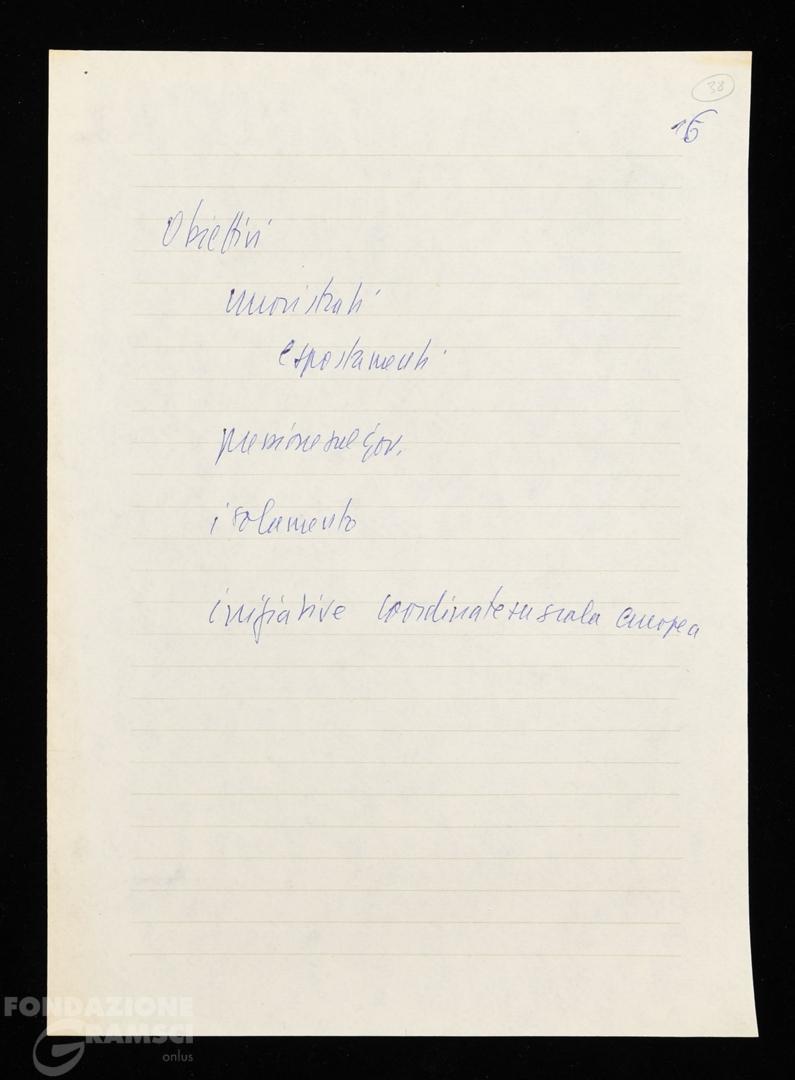 38
15
Obiettivi
nuovi strati
e spostamenti
pressione sul gov.
isolamento
iniziative coordinate su scala europea
FONDAZIONE
GRAMSCI
onlus